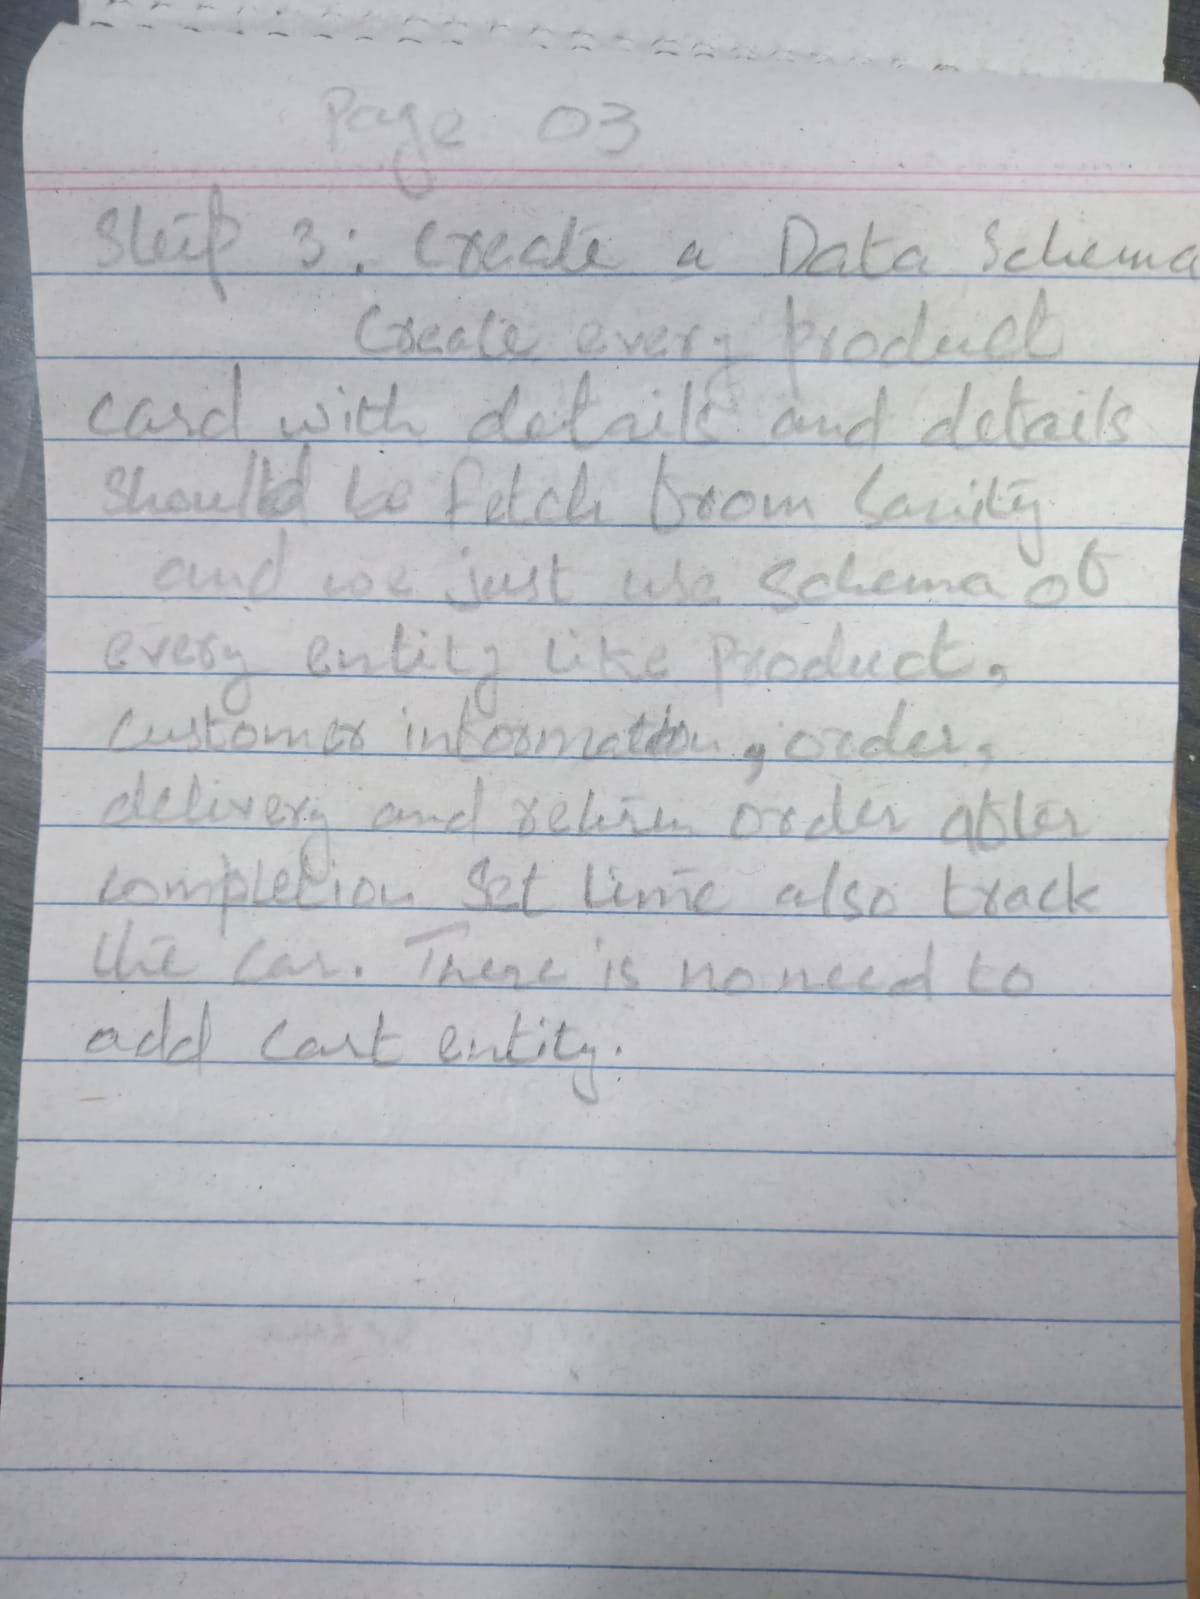 Page 03
Step 3: Create a Data Schema
Create every product
card with details and details
should be fetch from Sanity
and we just use schema of
every entity like product,
customer information, order,
delivery and return order after
completion set time also track
the car. There is no need to
add cart entity.